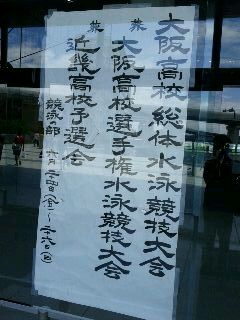 大阪高校総体水泳競技大会
兼 大阪高校選手権水泳競技大会
兼 近畿高校予選会
競泳の部 六月二十四日(金)～二十六日(日)